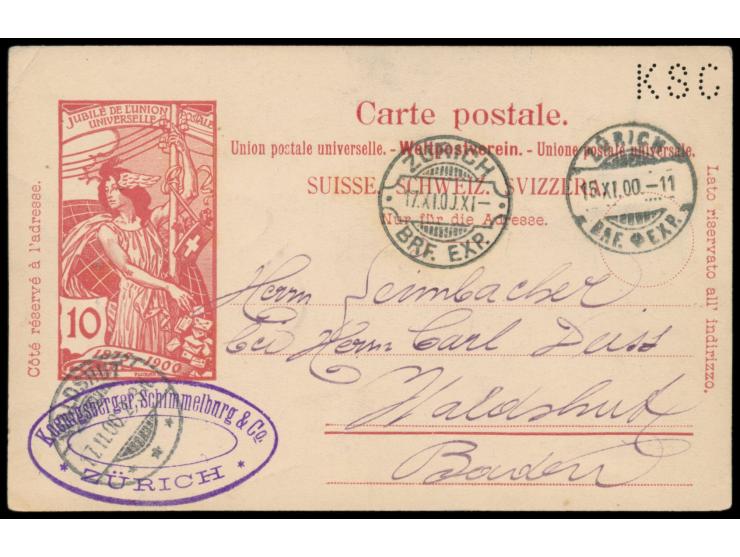 KSC
JUBILÉ DE L'UNION POSTALE
UNIVERSELLE
Carte postale.
Union postale universelle. - Weltpostverein. - Unione postale universale.
SUISSE. SCHWEIZ. SVIZZERA.
Nur für die Adresse.
Côté réservé à l'adresse.
Lato riservato all' indirizzo.
ZÜRICH
17.XI.00.XI-
BRF. EXP.
ZÜRICH
-11
BRF. EXP.
10
1875-1900
Herrn Leimbacher
bei Herrn Carl Deiss
Waldshut
Baden
WALDSHUT
Koenigsberger, Schimmelburg & Co.
* ZÜRICH *